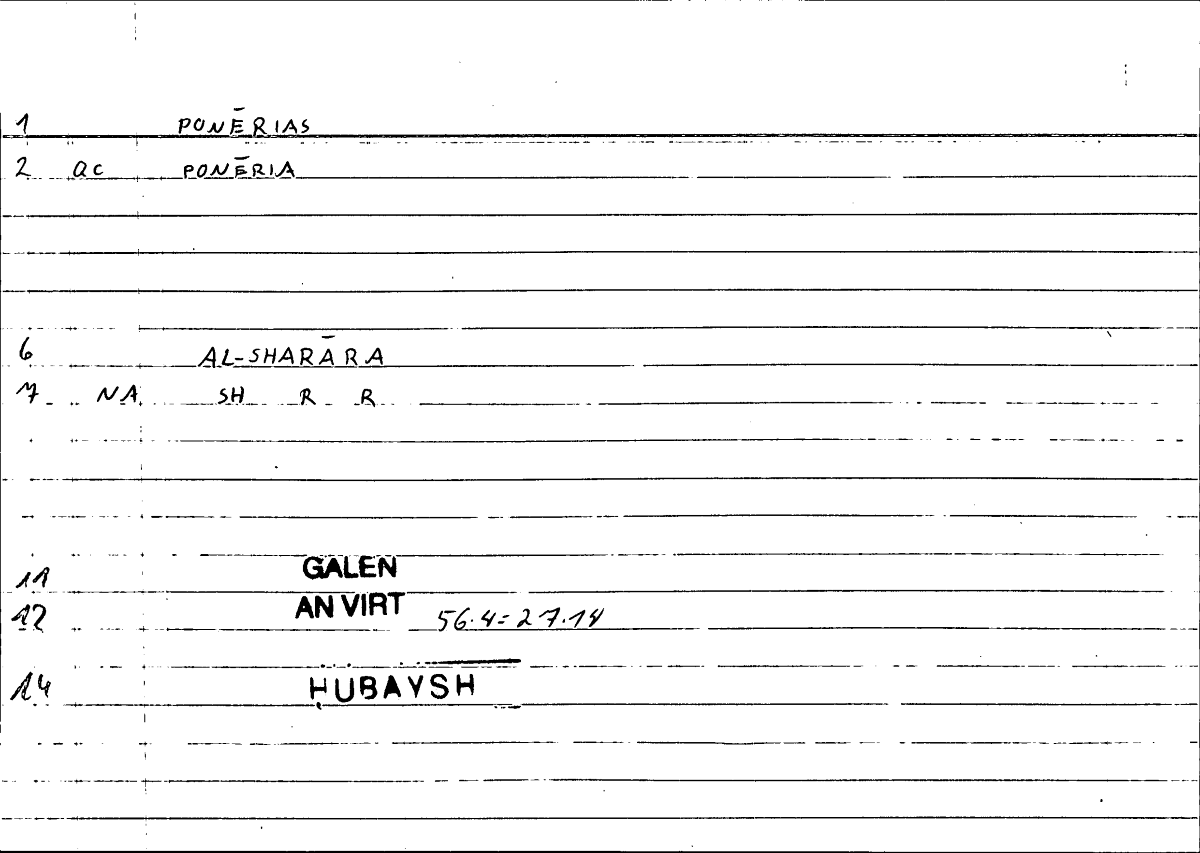 1 PONĒRIAS
2 QC PONĒRIA
6 AL-SHARĀRA
7 NA SH R R
11 GALEN
12 AN VIRT 56.4=27.14
14 ḤUBAYSH